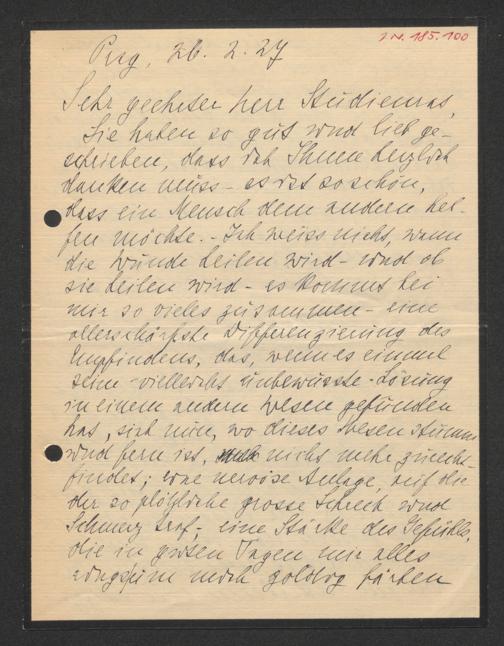 I.N. 185.100
Prag, 26. 2. 27
Sehr geehrter Herr Studienrat,
Sie haben so gut und lieb ge-
schrieben, dass ich Ihnen herzlich
danken muss - es ist so schön,
dass ein Mensch dem andern hel-
fen möchte. - Ich weiss nicht, wann
die Wunde heilen wird - und ob
sie heilen wird - es kommt bei
mir so vieles zusammen - eine
allerschärfste Differenzierung des
Empfindens, das, wenn es einmal
seine - vielleicht unbewusste - Lösung
in einem andern Wesen gefunden
hat, sich nun, wo dieses Wesen stumm
und fern ist, nicht mehr zurecht-
findet; eine nervöse Anlage, auf die
der so plötzliche grosse Schreck und
Schmerz traf, - eine Stärke des Gefühls,
die in guten Tagen mir alles
ringsum noch goldig färben